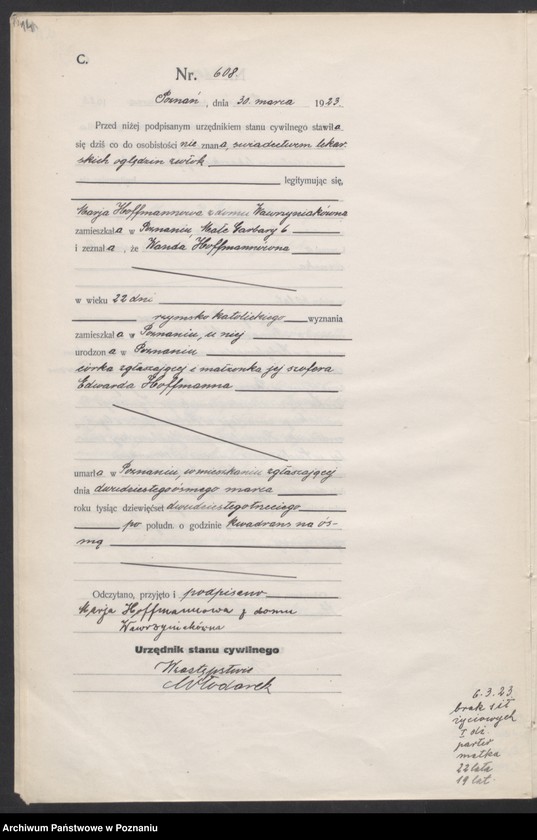 C.
Nr. 608.
Poznań, dnia 30. marca 1923
Przed niżej podpisanym urzędnikiem stanu cywilnego stawiła
się dziś co do osobistości nie znana, świadectwem lekar-
skich oględzin zwłok
legitymując się,
Marja Hoffmannowa z domu Wawrzyniakówna
zamieszkała w Poznaniu, Małe Garbary 6
i zeznała, że Wanda Hoffmannówna
w wieku 22 dni
rzymsko katolickiego wyznania
zamieszkała w Poznaniu, u niej
urodzona w Poznaniu
córka zgłaszającej i małżonka jej szofera
Edwarda Hoffmanna
umarła w Poznaniu, w mieszkaniu zgłaszającej
dnia dwudziestego ósmego marca
roku tysiąc dziewięćset dwudziestego trzeciego
po połudn. o godzinie kwadrans na ós-
mą
Odczytano, przyjęto i podpisano
Marja Hoffmannowa z domu
Wawrzyniakówna
Urzędnik stanu cywilnego
W zastępstwie
Włodarek
6.3.23
brak sił
życiowych
I dz
parter
matka
22 lata
19 lat
Archiwum Państwowe w Poznaniu